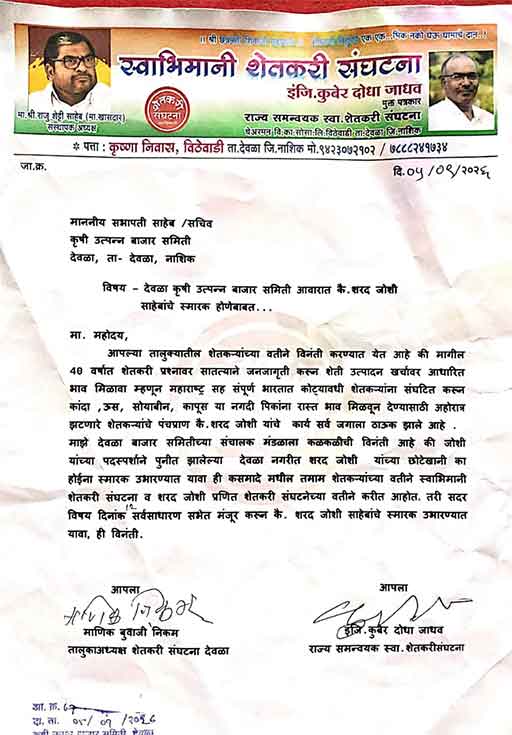 ।। श्री छत्रपती
एक एक ..भिक नको घेऊ घामाचं दान..!
स्वाभिमानी शेतकरी संघटना
इंजि.कुबेर दोधा जाधव
मुक्त पत्रकार
राज्य समन्वयक स्वा.शेतकरी संघटना
चेअरमन वि.का.सोसा.लि.विठेवाडी ता.देवळा जि.नाशिक
मा.श्री राजु शेट्टी साहेब (मा.खासदार)
संस्थापक अध्यक्ष
शेतकरी
संघटना
* पत्ता : कृष्णा निवास, विठेवाडी ता.देवळा जि.नाशिक मो.९४२३०७२१०२ / ७८८८२४१७३४
जा.क्र.
दि.०५/०१/२०२६
माननीय सभापती साहेब /सचिव
कृषी उत्पन्न बाजार समिती
देवळा, ता- देवळा, नाशिक
विषय – देवळा कृषी उत्पन्न बाजार समिती आवारात कै.शरद जोशी
साहेबांचे स्मारक होणेबाबत...
मा. महोदय,
आपल्या तालुक्यातील शेतकऱ्यांच्या वतीने विनंती करण्यात येत आहे की मागील
40 वर्षात शेतकरी प्रश्नावर सातत्याने जनजागृती करून शेती उत्पादन खर्चावर आधारित
भाव मिळावा म्हणून महाराष्ट्र सह संपूर्ण भारतात कोट्यावधी शेतकऱ्यांना संघटित करून
कांदा ,ऊस, सोयाबीन, कापूस या नगदी पिकांना रास्त भाव मिळवून देण्यासाठी अहोरात्र
झटणारे शेतकऱ्यांचे पंचप्राण कै.शरद जोशी यांचे कार्य सर्व जगाला ठाऊक झाले आहे .
माझे देवळा बाजार समितीच्या संचालक मंडळाला कळकळीची विनंती आहे की जोशी
यांच्या पदस्पर्शाने पुनीत झालेल्या देवळा नगरीत शरद जोशी यांच्या छोटेखानी का
होईना स्मारक उभारण्यात यावा ही कसमादे मधील तमाम शेतकऱ्यांच्या वतीने स्वाभिमानी
शेतकरी संघटना व शरद जोशी प्रणित शेतकरी संघटनेच्या वतीने करीत आहोत. तरी सदर
विषय दिनांक 12 सर्वसाधारण सभेत मंजूर करून कै. शरद जोशी साहेबांचे स्मारक उभारण्यात
यावा, ही विनंती.
आपला
आपला
माणिक बुवाजी निकम
इंजि.कुबेर दोधा जाधव
तालुकाअध्यक्ष शेतकरी संघटना देवळा
राज्य समन्वयक स्वा.शेतकरीसंघटना
आ. क्र.
दा. ता. ०५/०१/२०२६
कृषी उत्पन्न बाजार समिती, देवळा